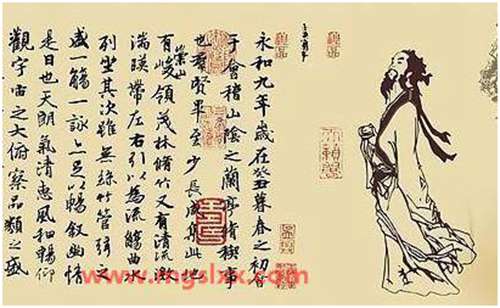 永和九年歲在癸丑暮春之初會
于會稽山陰之蘭亭脩稧事
也羣賢畢至少長咸集此地
有崇山峻領茂林脩竹又有清流激
湍暎帶左右引以為流觴曲水
列坐其次雖無絲竹管弦之
盛一觴一詠亦足以暢敘幽情
是日也天朗氣清惠風和暢仰
觀宇宙之大俯察品類之盛
www.mgslxx.com